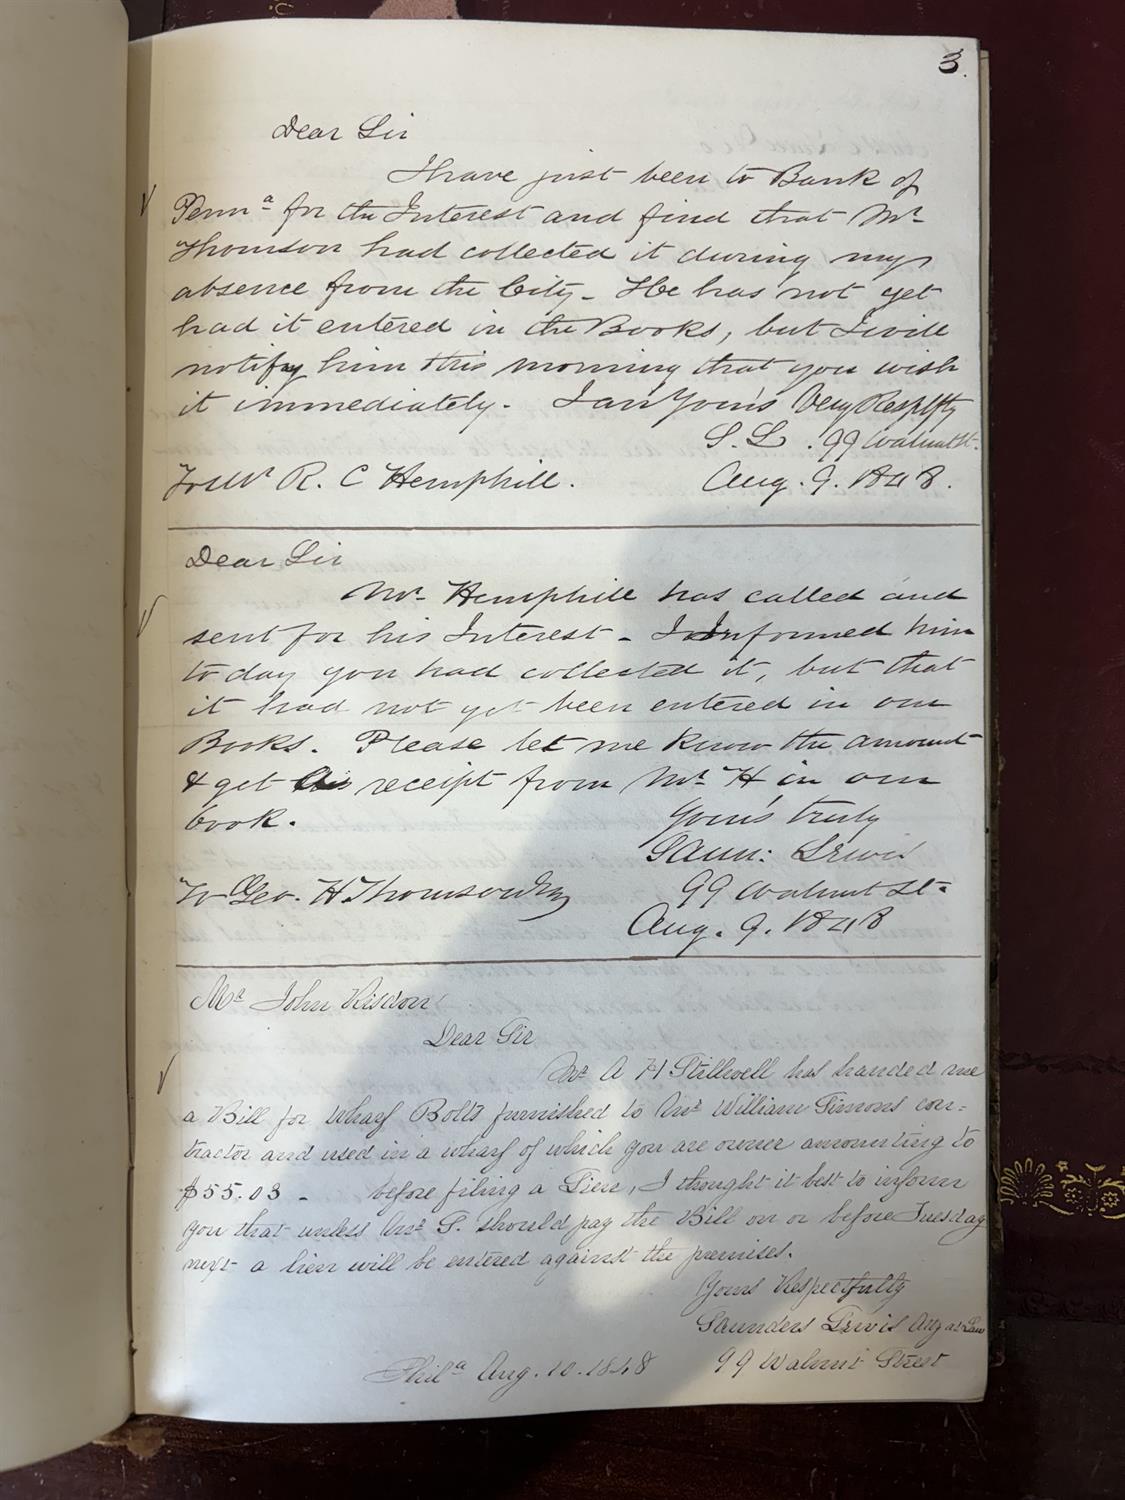 3.
Dear Sir
I have just been to Bank of
Penna for the Interest and find that Mr
Thomson had collected it during my
absence from the City. He has not yet
had it entered in the Books, but I will
notify him this morning that you wish
it immediately. I am Yours Very Respfty
S. L. 99 Walnut St.
To Mr R. C Hemphill. Aug. 9. 1848.
Dear Sir
Mr. Hemphill has called and
sent for his Interest - I informed him
to day you had collected it, but that
it had not yet been entered in our
Books. Please let me know the amount
& get receipt from Mr H, in our
book. Yours truly
Saun: Lewis
To Geo. H. Thomson Esq 99 Walnut St.
Aug. 9. 1848
Mr John Risdon
Dear Sir
Mr A H Stillwell has handed me
a Bill for Wharf Bolts furnished to Mr William Simons con=
tractor and used in a wharf of which you are owner amounting to
$55.03 - before filing a Lien, I thought it best to inform
you that unless Mr S. should pay the Bill on or before Tuesday
next a lien will be entered against the premises.
Yours Respectfully
Saunders Lewis Atty at Law
Phila Aug. 10. 1848 99 Walnut Street